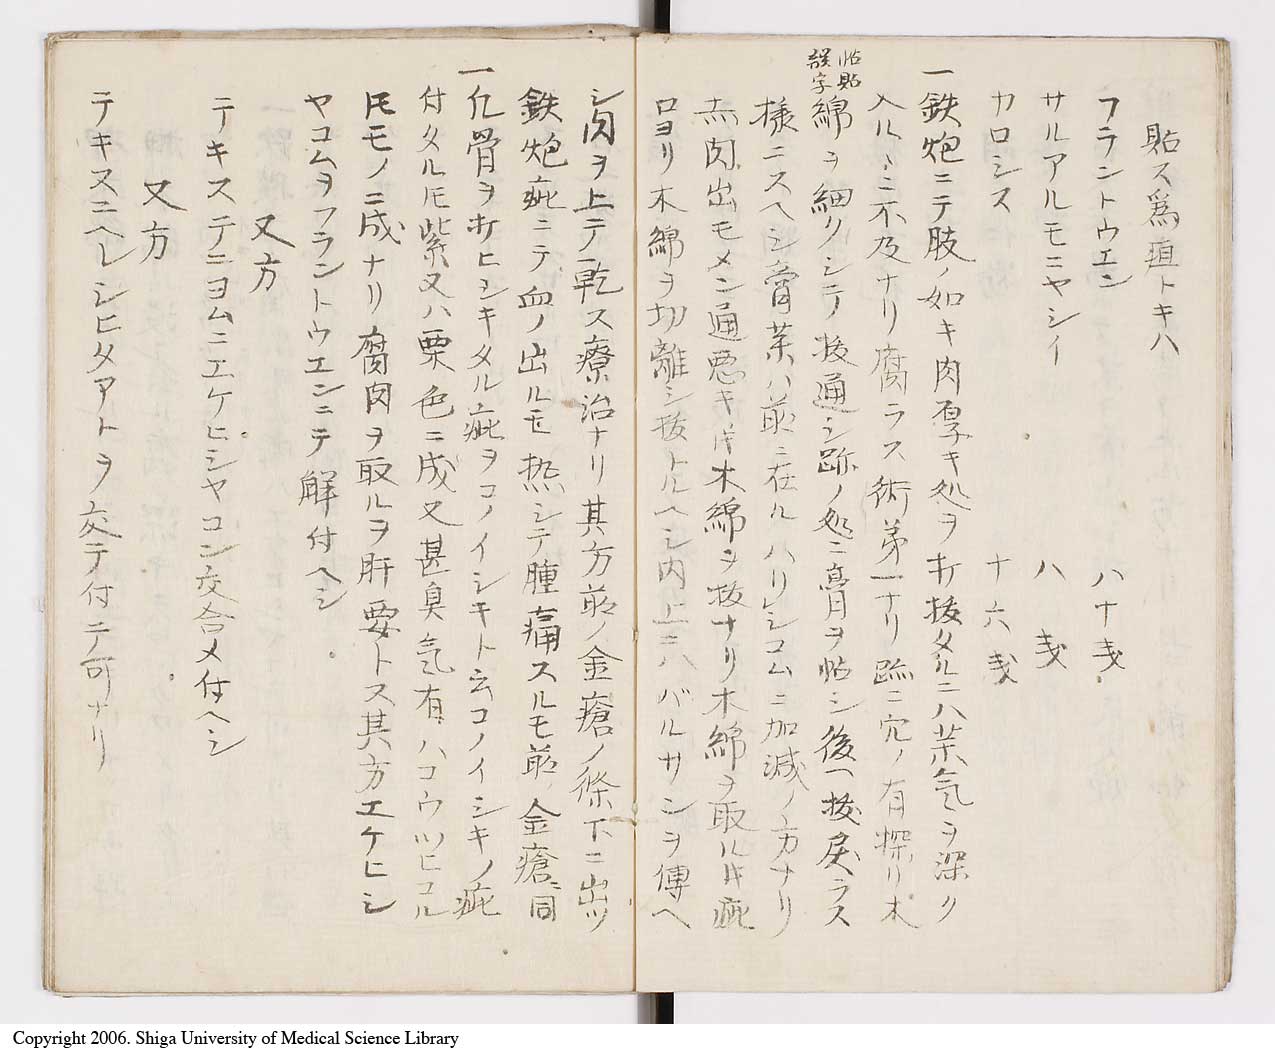 貼ス爲疽トキハ
フラントウエン 八十戔
サルアルモニヤシイ 八戔
カロシス 十六戔
一鉄炮ニテ肢ノ如キ肉厚キ処ヲ打抜タルニハ茶氣ヲ深ク
入ルヽニ不及ナリ腐ラス術第一ナリ跡ニ穴ノ有探リ木
帖貼
誤字
綿ヲ細クシテ抜通シ跡ノ処ニ膏ヲ帖シ後ヘ抜戻ラス
様ニスヘシ膏茶ハ前ニ在ルハリレシコムニ加減ノ方ナリ
赤肉出モメン通悪キ時木綿ヲ抜ナリ木綿ヲ取ル時疵
口ヨリ木綿ヲ切離シ抜トルヘシ内上ニハバルサンヲ傳ヘ
シ肉ヲ上テ乾ス療治ナリ其方前ノ金瘡ノ條下ニ出ツ
鉄炮疵ニテ血ノ出ルモ熱シテ腫痛スルモ前ノ金瘡ニ同
一凡骨ヲ打ヒシキタル疵ヲコノイシキト云コノイシキノ疵
付タル𪜈紫又ハ栗色ニ成又甚臭氣有ハコウツヒユル
𪜈モノニ成ナリ腐肉ヲ取ルヲ肝要トス其方エケヒシ
ヤコムヲフラントウエンニテ解付ヘシ
又方
テキステニヨムニエケヒシヤコン交合メ付ヘシ
又方
テキヌニヘレシヒタアトヲ交テ付テ可ナリ
Copyright 2006. Shiga University of Medical Science Library